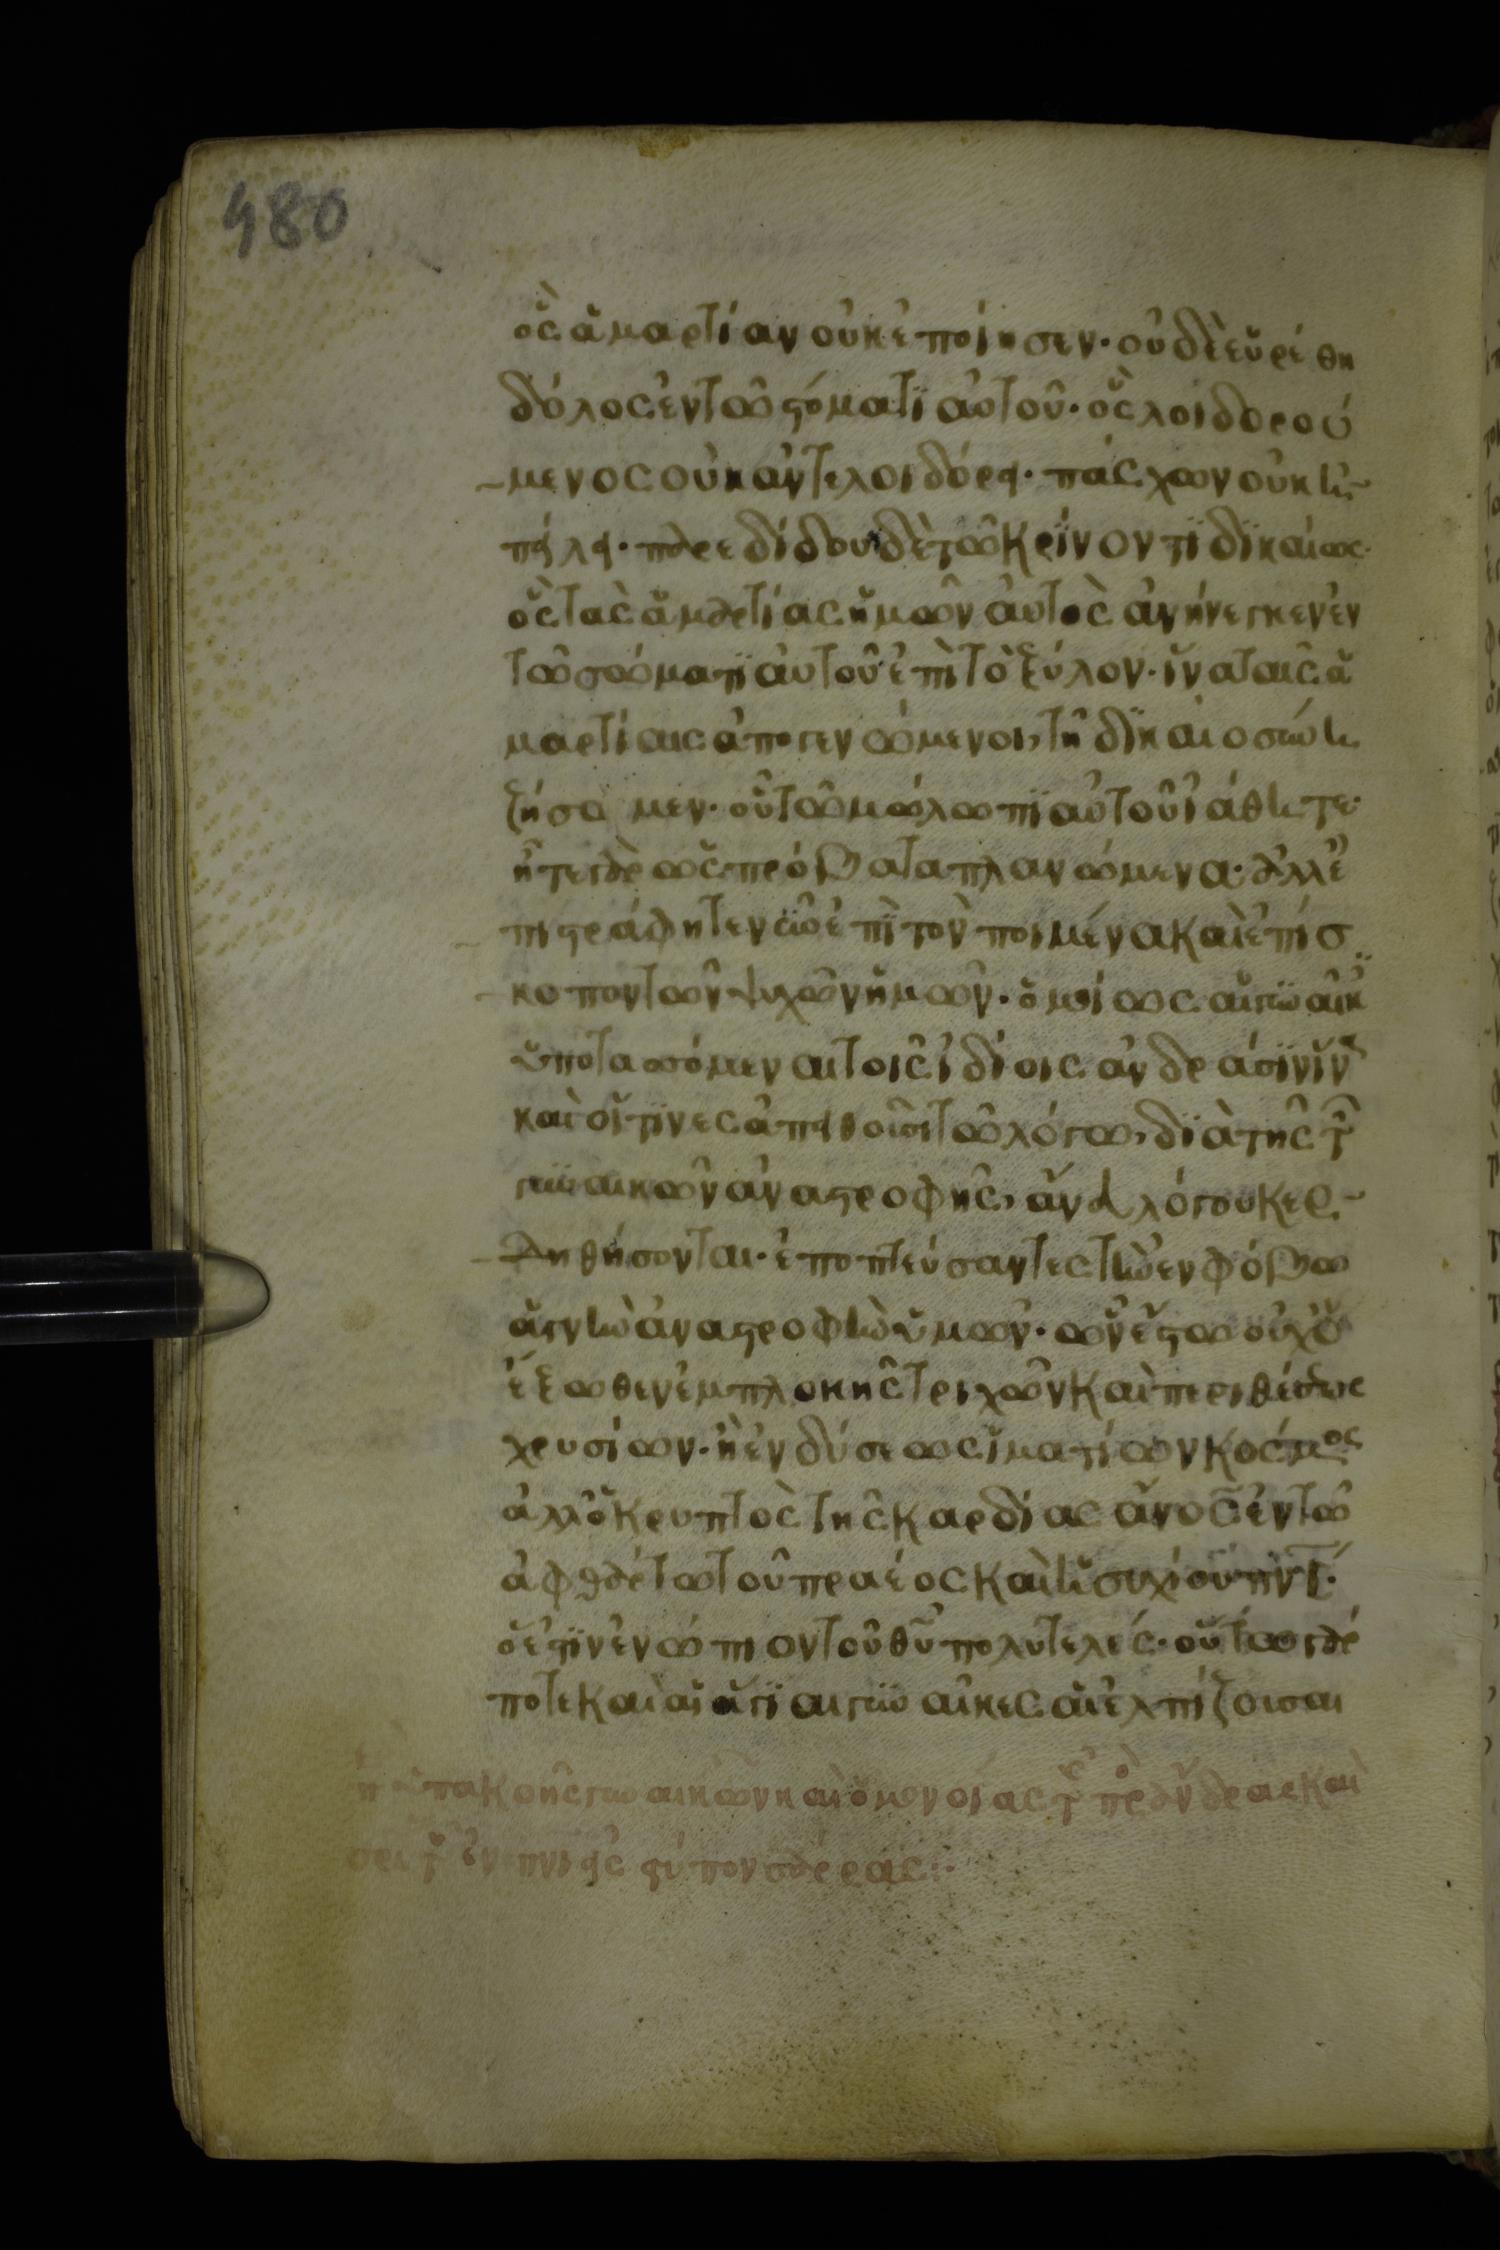 480
ὃς ἁμαρτίαν οὐκ ἐποίησεν· οὐδὲ εὑρέθη
δόλος ἐν τῶ στόματι αὐτοῦ· ὃς λοιδορού
μενος οὐκ ἀντελοιδόρει· πάσχων οὐκ ἠ
πείλει· παρεδίδου δὲ τῶ κρίνοντι δικαίως·
ὃς τὰς ἁμαρτίας ἡμῶν αὐτὸς ἀνήνεγκεν ἐν
τῶ σώματι αὐτοῦ ἐπὶ τὸ ξύλον· ἵνα ταῖς ἁ
μαρτίαις ἀπογενώμενοι, τῆ δικαιοσύνη
ζήσομεν· οὗ τῶ μώλωπι αὐτοῦ ἰάθητε·
ἦτε γὰρ ὡς πρόβατα πλανώμενα· ἀλλ' ἐ
πιστράφητε νῦν ἐπὶ τὸν ποιμένα καὶ ἐπίσ
κοπον τῶν ψυχῶν ἡμῶν· ὁμοίως αἱ γυναῖκ
ὑποτασσόμεναι τοῖς ἰδίοις ἀνδράσιν ἵν
καὶ οἵτινες ἀπειθοῦσι τῶ λόγω, διὰ τῆς τ
γυναικῶν ἀναστροφῆς, ἄνευ λόγου κερ
δηθήσονται· ἐποπτεύσαντες τὴν ἐν φόβω
ἁγνὴν ἀναστροφὴν ὑμῶν· ὧν ἔστω οὐχ ὁ
ἔξωθεν ἐμπλοκῆς τριχῶν καὶ περιθέσεως
χρυσίων· ἢ ἐνδύσεως ἱματίων κόσμος
ἀλλ' ὁ κρυπτὸς τῆς καρδίας ἄνος ἐν τῶ
ἀφθάρτω τοῦ πραέος καὶ ἡσυχίου πντ·
ὅ ἐστιν ἐνώπιον τοῦ θυ πολυτελές· οὕτως γάρ
ποτε καὶ αἱ ἅγιαι γυναῖκες αἱ ἐλπίζουσαι
ὑπακοῆς γυναικῶν καὶ ὁμονοίας τ πρ ἄνδρας καὶ
τύπον σάρρας:·